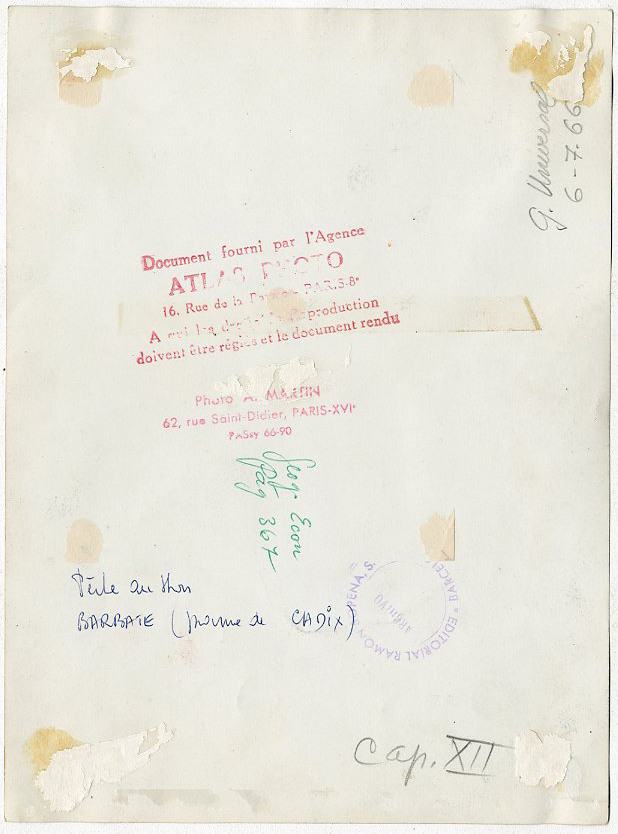 G. Universal
6-7-66
Document fourni par l'Agence
ATLAS PHOTO
16, Rue de la PARIS-8e
A qui les droits de Reproduction
doivent être réglés et le document rendu
Photo A. MARTIN
62, rue Saint-Didier, PARIS-XVIe
PASsy 66-90
Geog. Econ
Pág 367
au thon
BARBATE ( de CADIX)
EDITORIAL RAMON S.
BARCE
ARCHIVO
Cap. XII